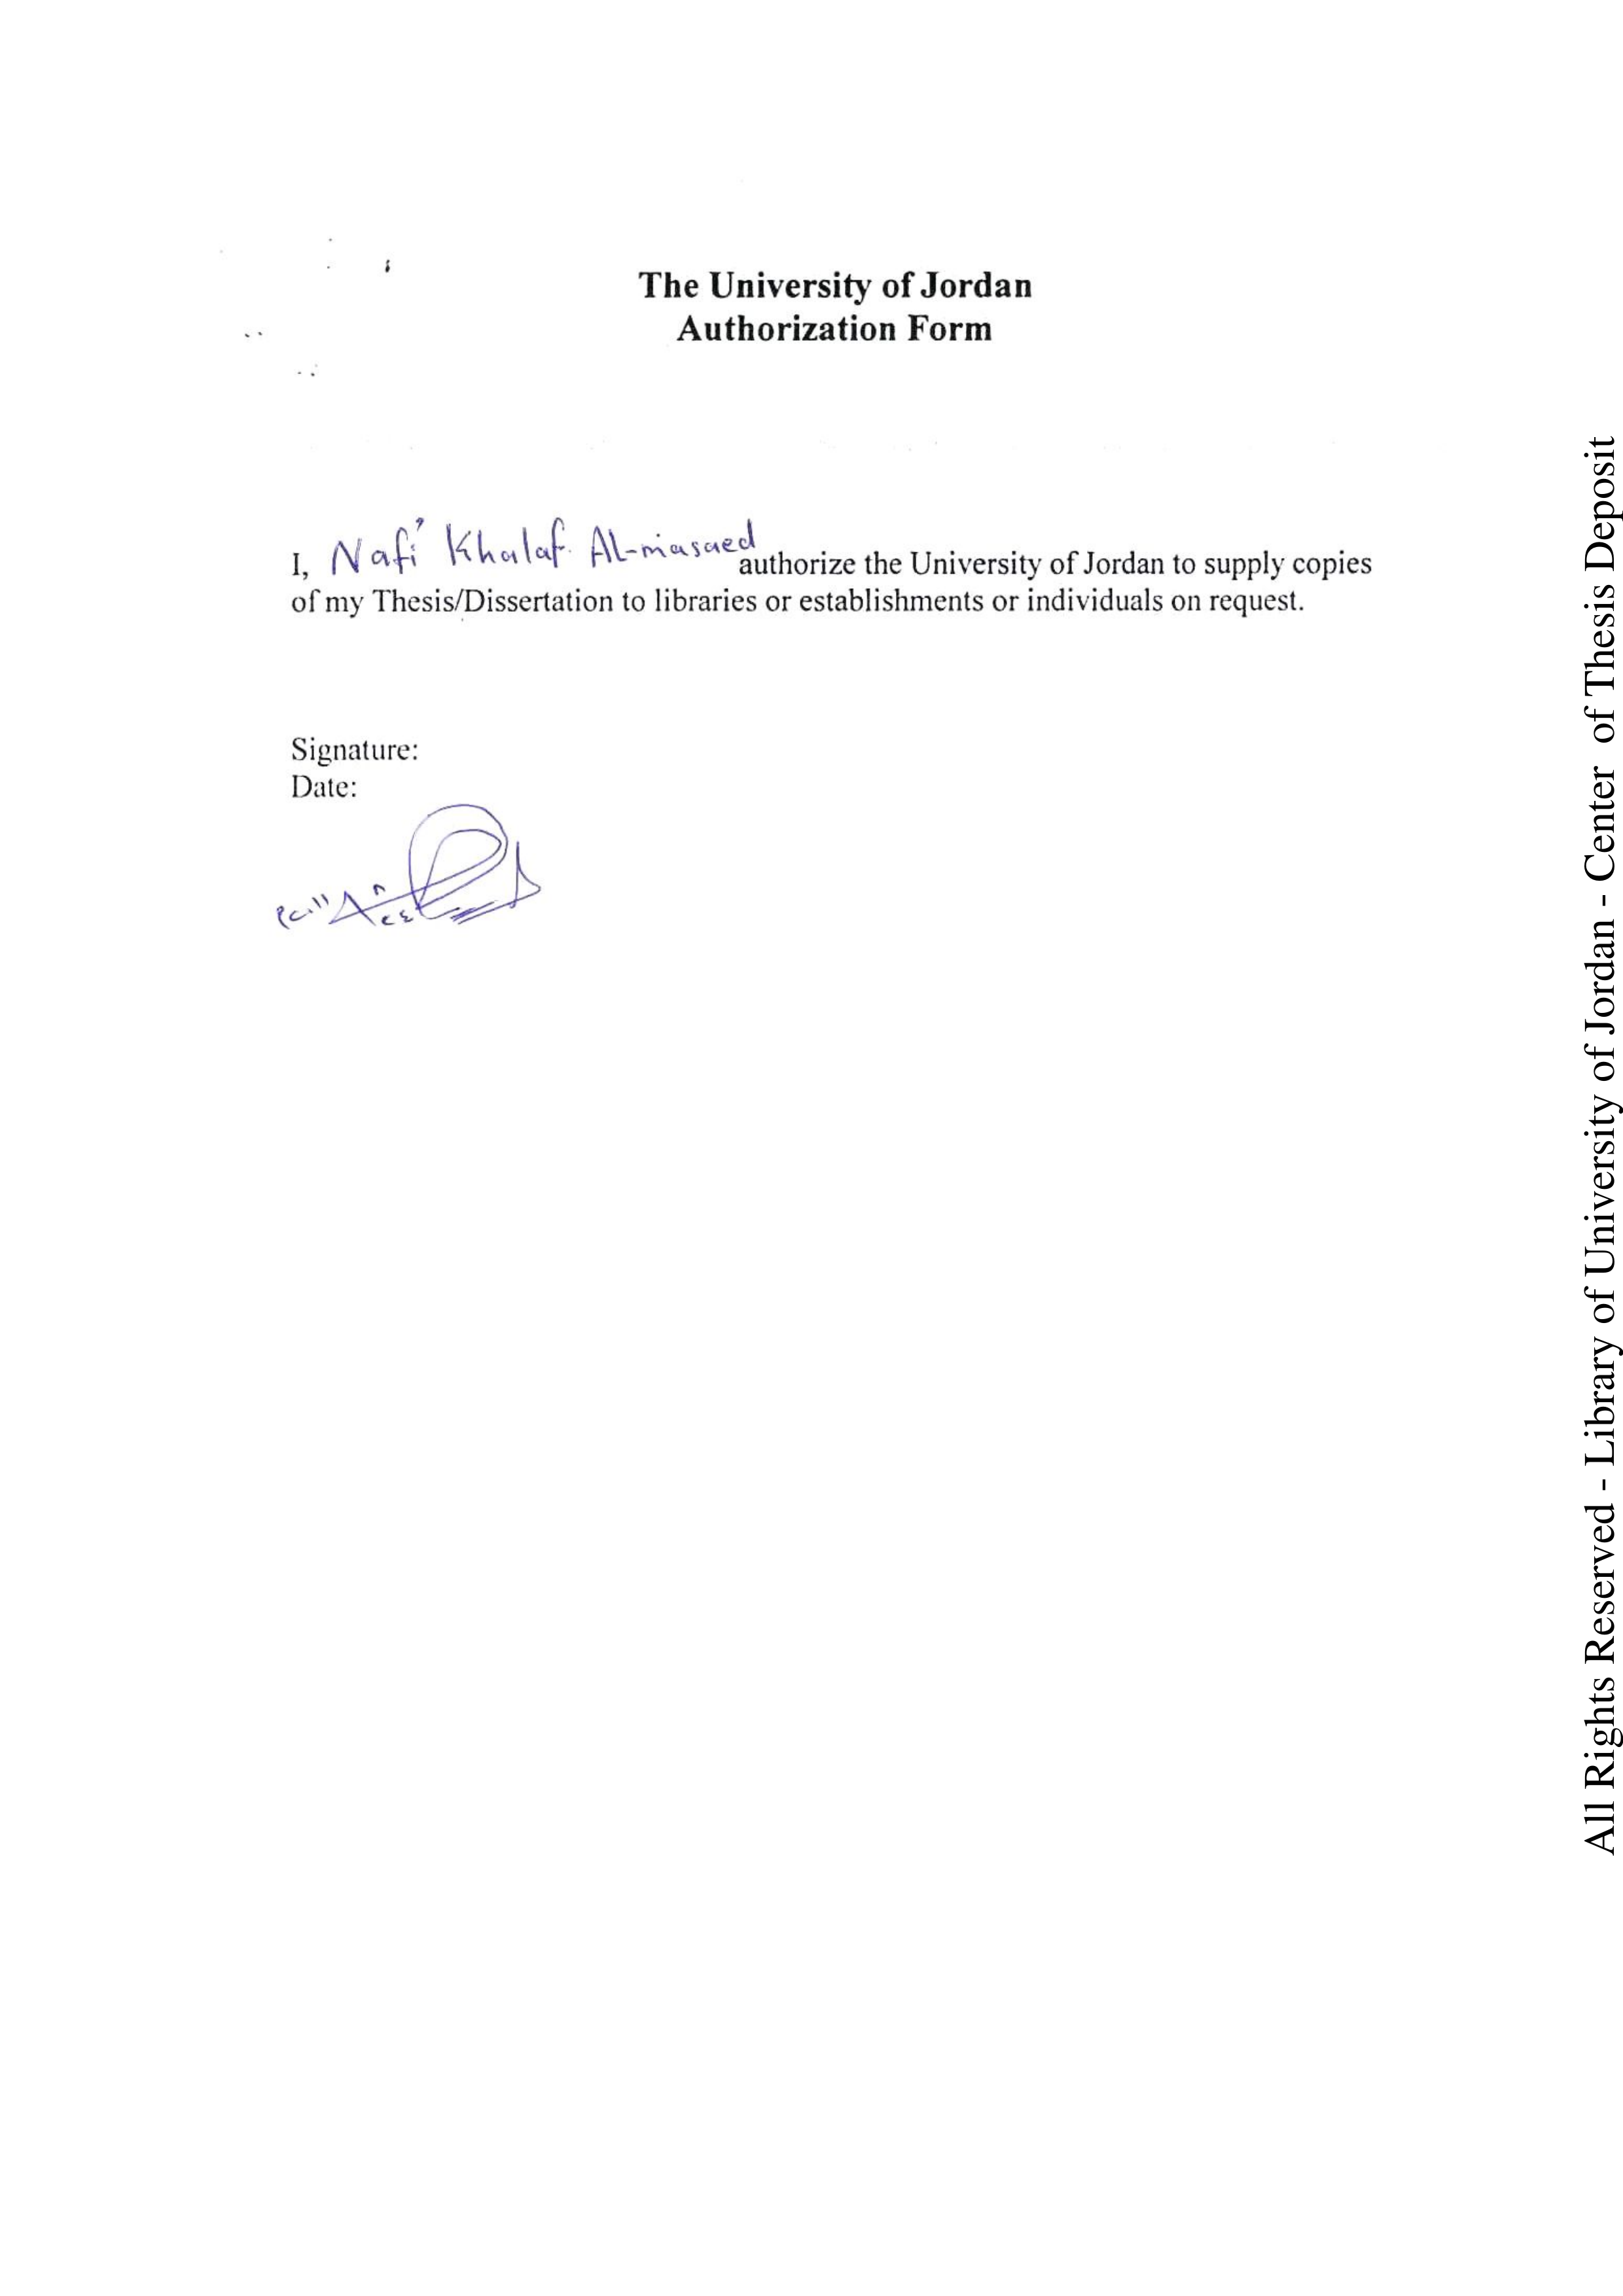 The University of Jordan
Authorization Form
I, Nafi' Khalaf Al-masaed authorize the University of Jordan to supply copies
of my Thesis/Dissertation to libraries or establishments or individuals on request.
Signature:
Date:
All Rights Reserved - Library of University of Jordan - Center of Thesis Deposit